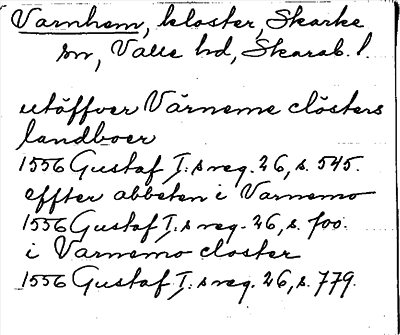 Varnhem, kloster, Skarke
sn, Valle hd, Skarab. l.
utöffver Värneme clösters
landboer
1556 Gustaf I:s reg. 26, s. 545.
effter abboten i Varnemo
1556 Gustaf I:s reg. 26, s. 700.
i Varnemo closter
1556 Gustaf I:s reg. 26, s. 779.